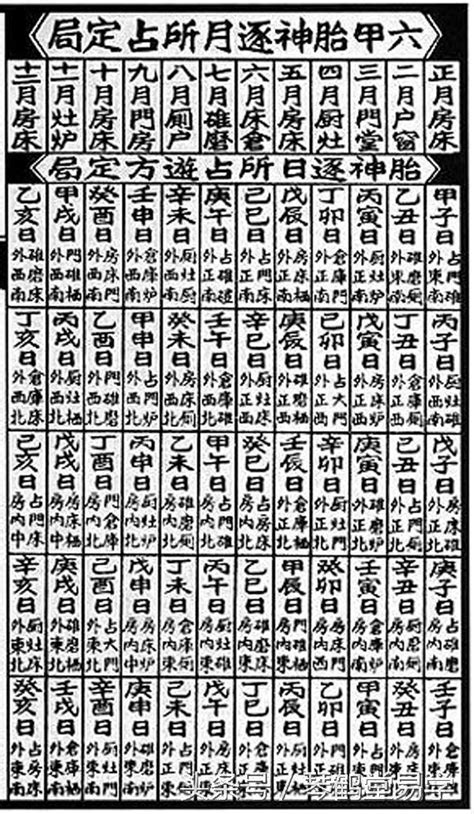 六甲胎神逐月所占定局
正月房床
二月户窗
三月門堂
四月厨灶
五月房床
六月床倉
七月碓磨
八月厠户
九月門房
十月房床
十一月灶炉
十二月房床
胎神逐日所占遊方定局
甲子日 占門碓 外東南
乙丑日 碓磨厠 外東南
丙寅日 厨灶炉 外正南
丁卯日 倉庫門 外正南
戊辰日 房床栖 外正南
己巳日 占門床 外正南
庚午日 占碓磨 外正南
辛未日 厨灶厠 外西南
壬申日 倉庫炉 外西南
癸酉日 房床門 外西南
甲戌日 門碓栖 外西南
乙亥日 碓磨床 外西南
丙子日 厨灶碓 外西南
丁丑日 倉庫厠 外正西
戊寅日 房床炉 外正西
己卯日 占大門 外正西
庚辰日 碓磨栖 外正西
辛巳日 厨灶床 外正西
壬午日 倉庫碓 外西北
癸未日 房床厠 外西北
甲申日 占門炉 外西北
乙酉日 碓磨門 外西北
丙戌日 厨灶栖 外西北
丁亥日 倉庫床 外西北
戊子日 房床碓 外正北
己丑日 占門厠 外正北
庚寅日 碓磨炉 外正北
辛卯日 厨灶門 外正北
壬辰日 倉庫栖 外正北
癸巳日 占房床 房内北
甲午日 占門碓 房内北
乙未日 碓磨厠 房内北
丙申日 厨灶炉 房内北
丁酉日 倉庫門 房内北
戊戌日 房床栖 房内
己亥日 占門床 房内中
庚子日 占碓磨 房内南
辛丑日 厨灶厠 房内南
壬寅日 倉庫炉 房内南
癸卯日 房床門 房内西
甲辰日 門碓栖 房内東
乙巳日 碓磨床 房内東
丙午日 厨灶碓 房内東
丁未日 倉庫厠 房内東
戊申日 房床炉 房内中
己酉日 占大門 外東北
庚戌日 碓磨栖 外東北
辛亥日 厨灶床 外東北
壬子日 倉庫碓 外東北
癸丑日
甲寅日
乙卯日
丙辰日
丁巳日
戊午日
己未日
庚申日 碓磨炉 外東南
辛酉日 厨灶門 外東南
壬戌日 倉庫栖 外東南
癸亥日 占房床 外東南
头条号 / 琴鹤堂易学